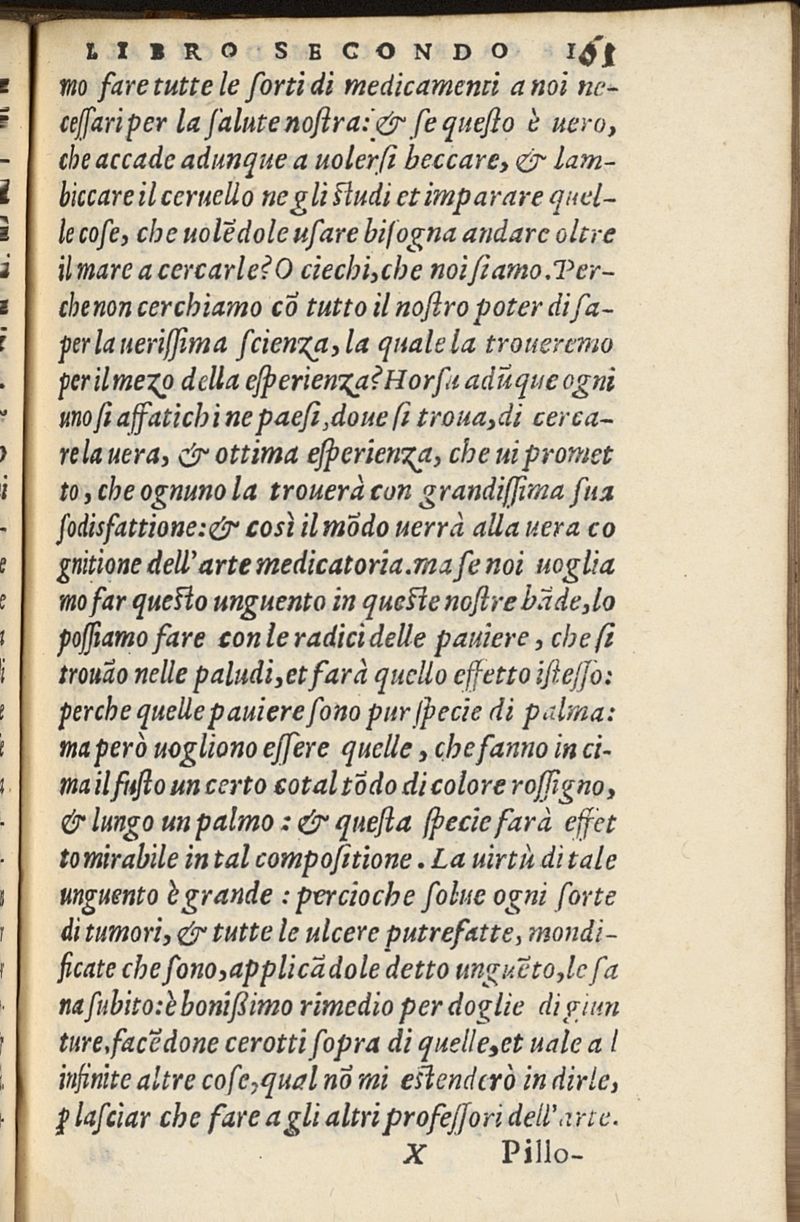 LIBRO SECONDO 161
mo fare tutte le ſorti di medicamenti a noi ne-
ceſſari per la ſalute noſtra: & ſe queſto è uero,
che accade adunque a uolerſi beccare, & lam-
biccare il ceruello ne gli ſtudi et imparare quel-
le cose, che uolẽdole uſare biſogna andare oltre
il mare a cercarle? O ciechi, che noi ſiamo. Per-
che non cerchiamo cõ tutto il noſtro poter di ſa-
per la ueriſſima ſcienza, la quale la troueremo
per il mezo della eſperienza? Horſu adũque ogni
uno ſi affatichi ne paeſi, doue ſi troua, di cerca-
re la uera, & ottima eſperienza, che ui promet
to, che ognuno la trouerà con grandiſſima ſua
ſodisfattione: & così il mõdo uerrà alla uera co
gnitione dell'arte medicatoria. ma ſe noi uoglia
mo far queſto unguento in queſte noſtre bãde, lo
poſſiamo fare con le radici delle pauiere, che ſi
trouão nelle paludi, et farà quello effetto iſteſſo:
perche quelle pauiere ſono pur ſpecie di palma:
ma però uogliono eſſere quelle, che fanno in ci-
ma il fuſto un certo cotal tõdo di colore roſſigno,
& lungo un palmo: & queſta ſpecie farà effet
to mirabile in tal compoſitione. La uirtù di tale
unguento è grande: percioche ſolue ogni ſorte
di tumori, & tutte le ulcere putrefatte, mondi-
ficate che ſono, applicãdole detto unguẽto, le ſa
na ſubito: è boniſsimo rimedio per doglie di giun
ture, facẽdone cerotti ſopra di quelle, et uale a l
infinite altre coſe, qual nõ mi eſtenderò in dirle,
ꝑ laſciar che fare a gli altri profeſſori dell'arte.
X Pillo-